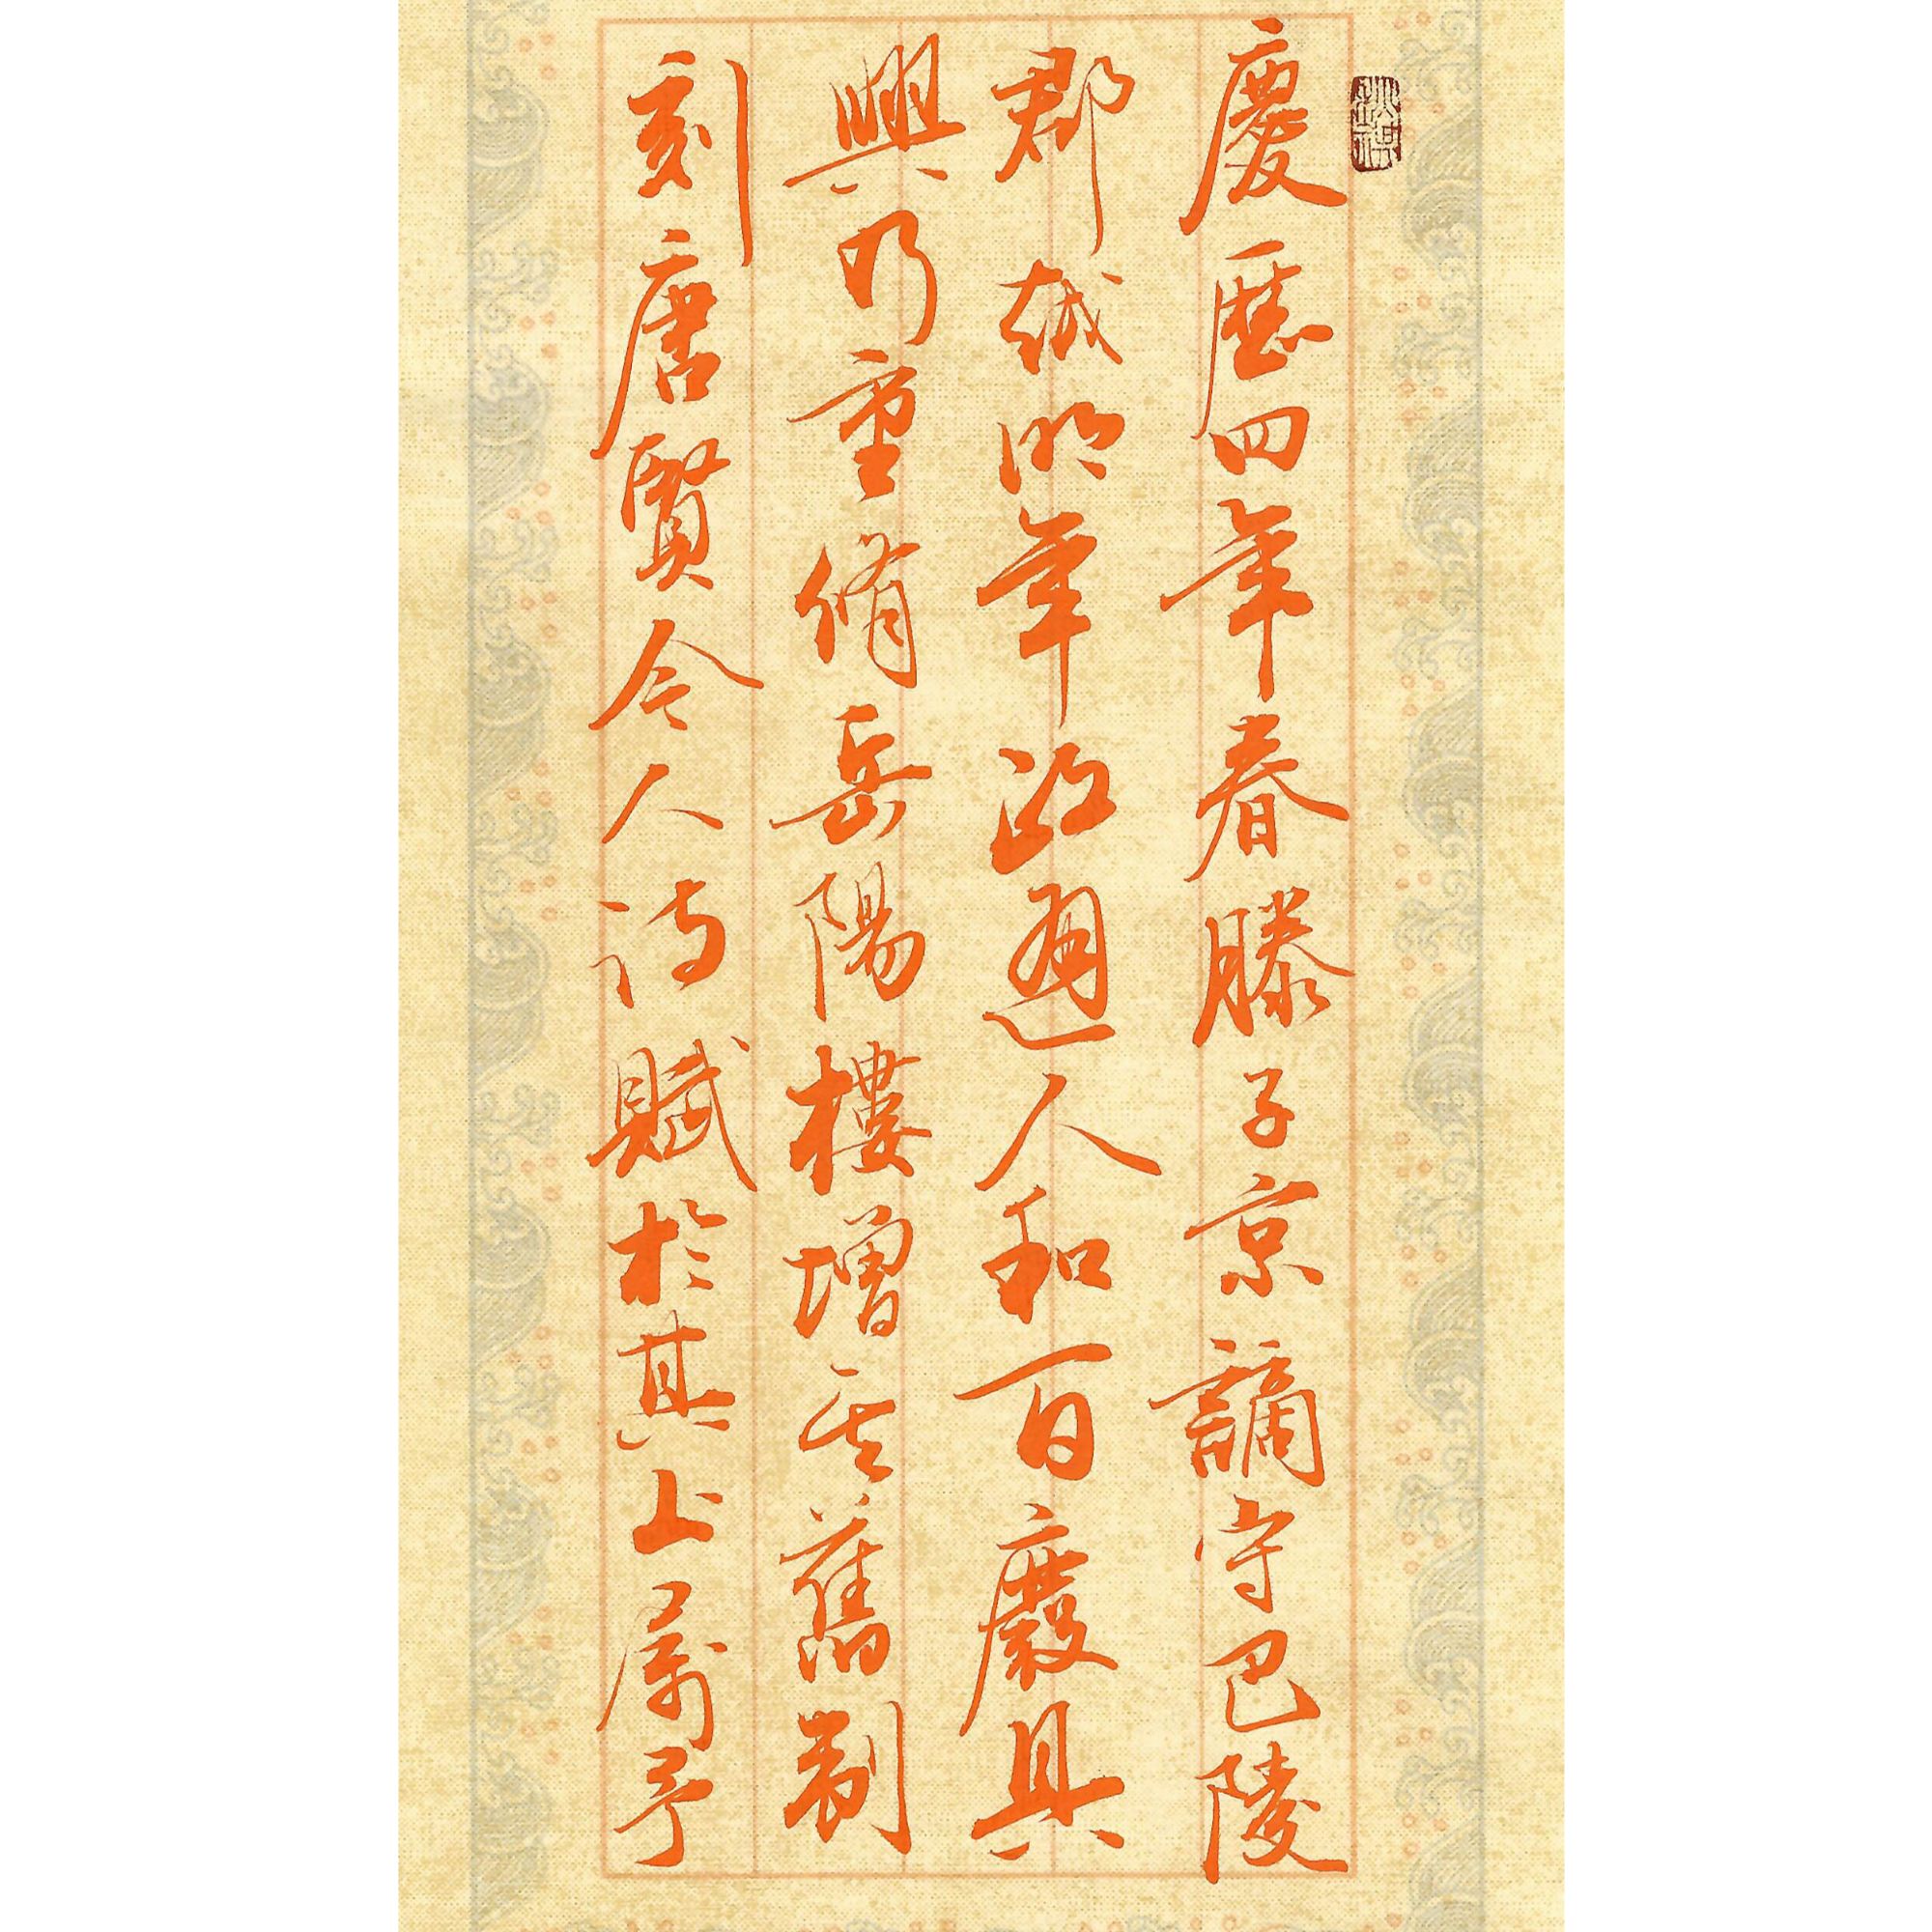 慶歷四年春滕子京謫守巴陵
郡越明年政通人和百廢具
興乃重脩岳陽樓增其舊制
刻唐賢今人詩賦於其上屬予